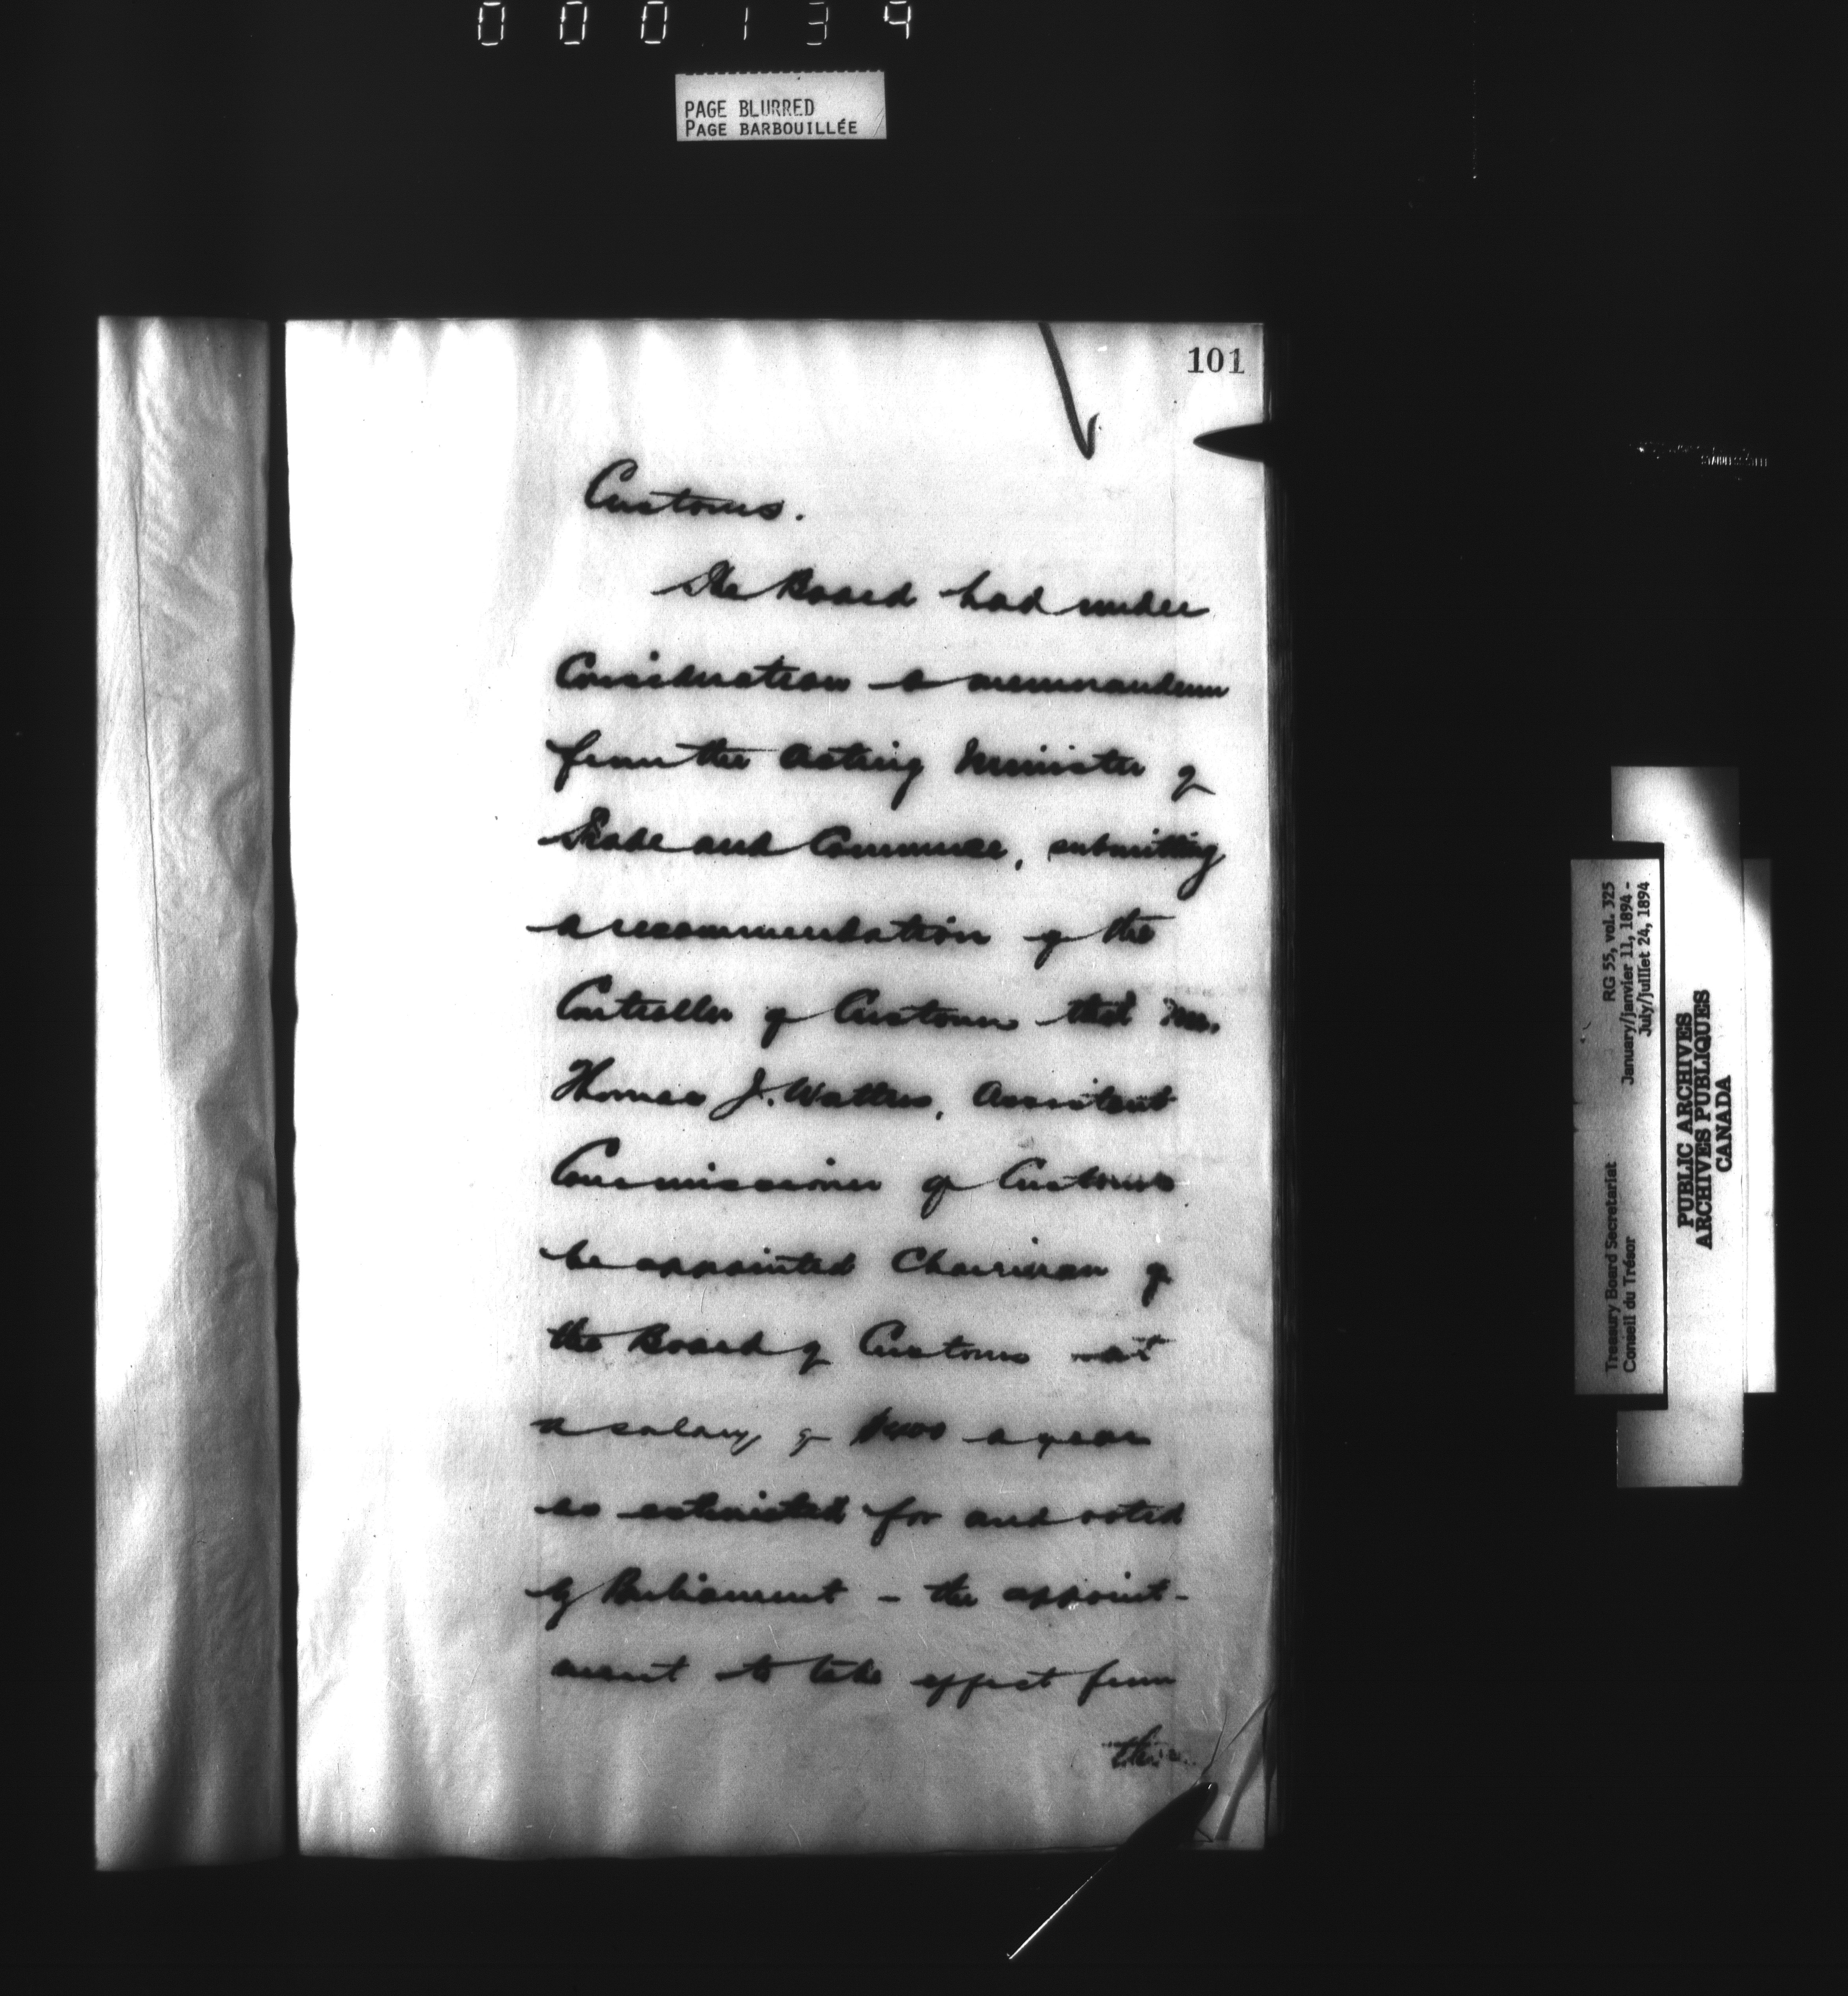 000134
PAGE BLURRED
PAGE BARBOUILLÉE
101
Customs.
The Board had under
Consideration a memorandum
from the Acting Minister of
Trade and Commerce, submitting
a recommendation of the
Controller of Customs that Mr.
Thomas J. Watters, Assistant
Commissioner of Customs
be appointed Chairman of
the Board of Customs at
a salary of a year
as estimated for and voted
by Parliament - the appoint-
ment to take effect from
the
Treasury Board Secretariat RG 55, vol. 325
Conseil du Trésor January/janvier 11, 1894 -
July/juillet 24, 1894
PUBLIC ARCHIVES
ARCHIVES PUBLIQUES
CANADA